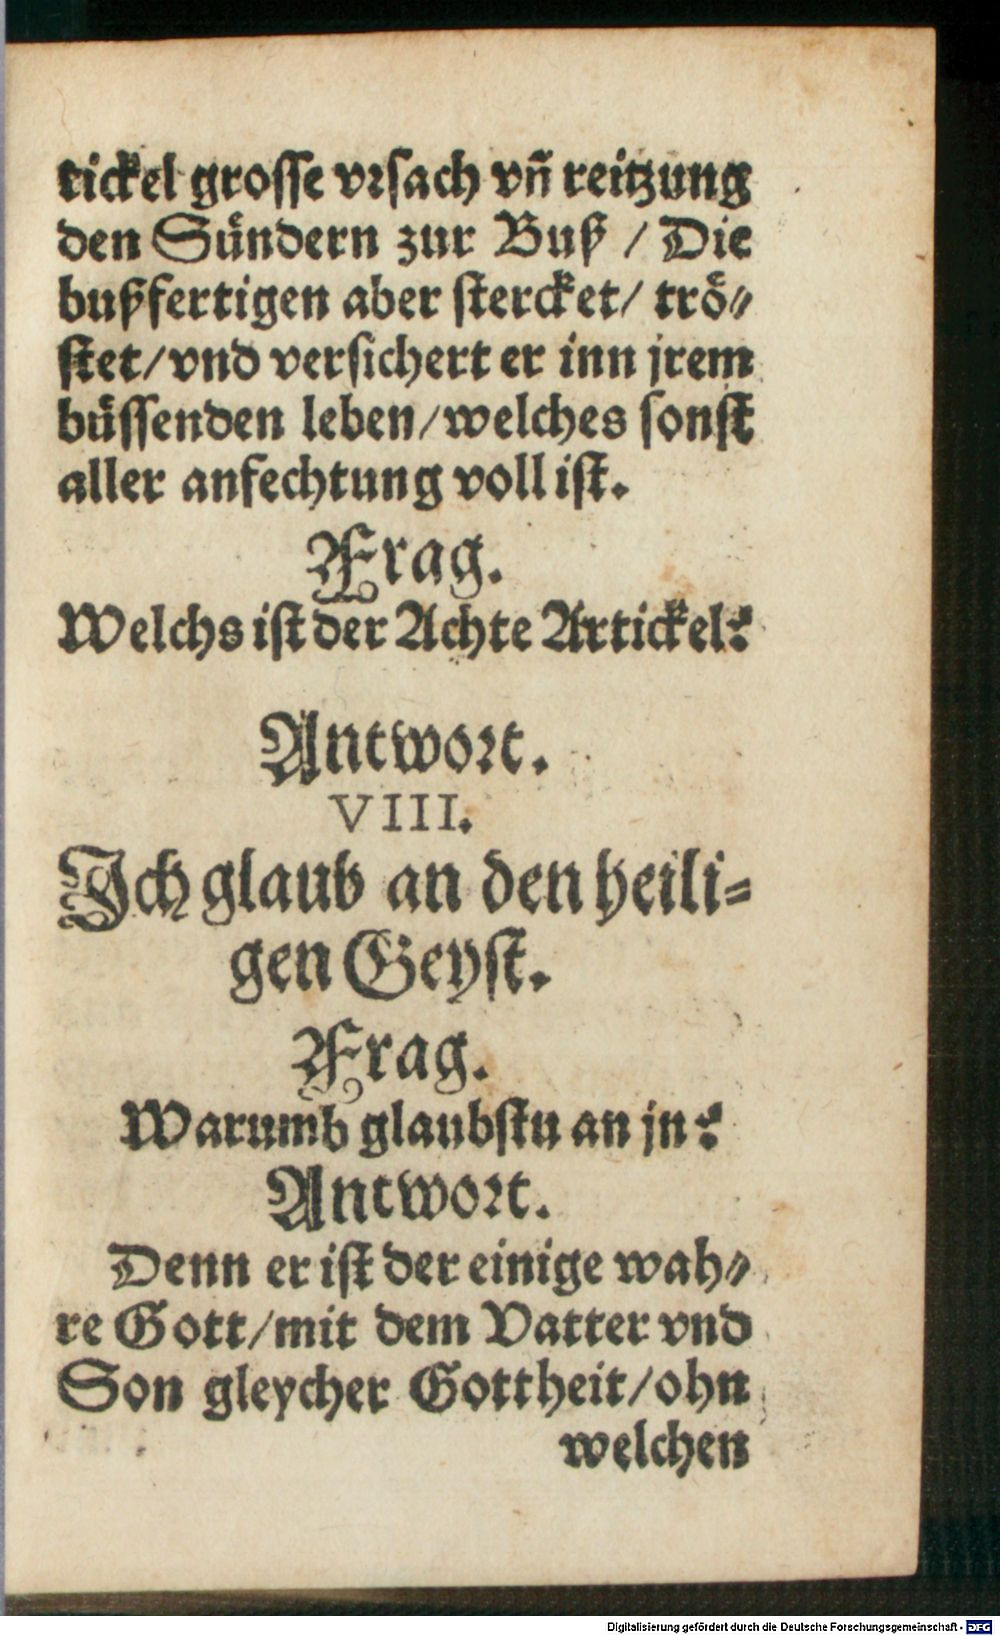 tickel grosse vrsach vñ reitzung
den Sündern zur Buß / Die
bußfertigen aber stercket/ trö-
stet/vnd versichert er inn jrem
büssenden leben/welches sonst
aller anfechtung voll ist.
Frag.
Welchs ist der Achte Artickel?
Antwort.
VIII.
Ich glaub an den heili-
gen Geyst.
Frag.
Warumb glaubstu an jn?
Antwort.
Denn er ist der einige wah-
re Gott/mit dem Vatter vnd
Son gleycher Gottheit/ohn
welchen
Digitalisierung gefördert durch die Deutsche Forschungsgemeinschaft - DFG